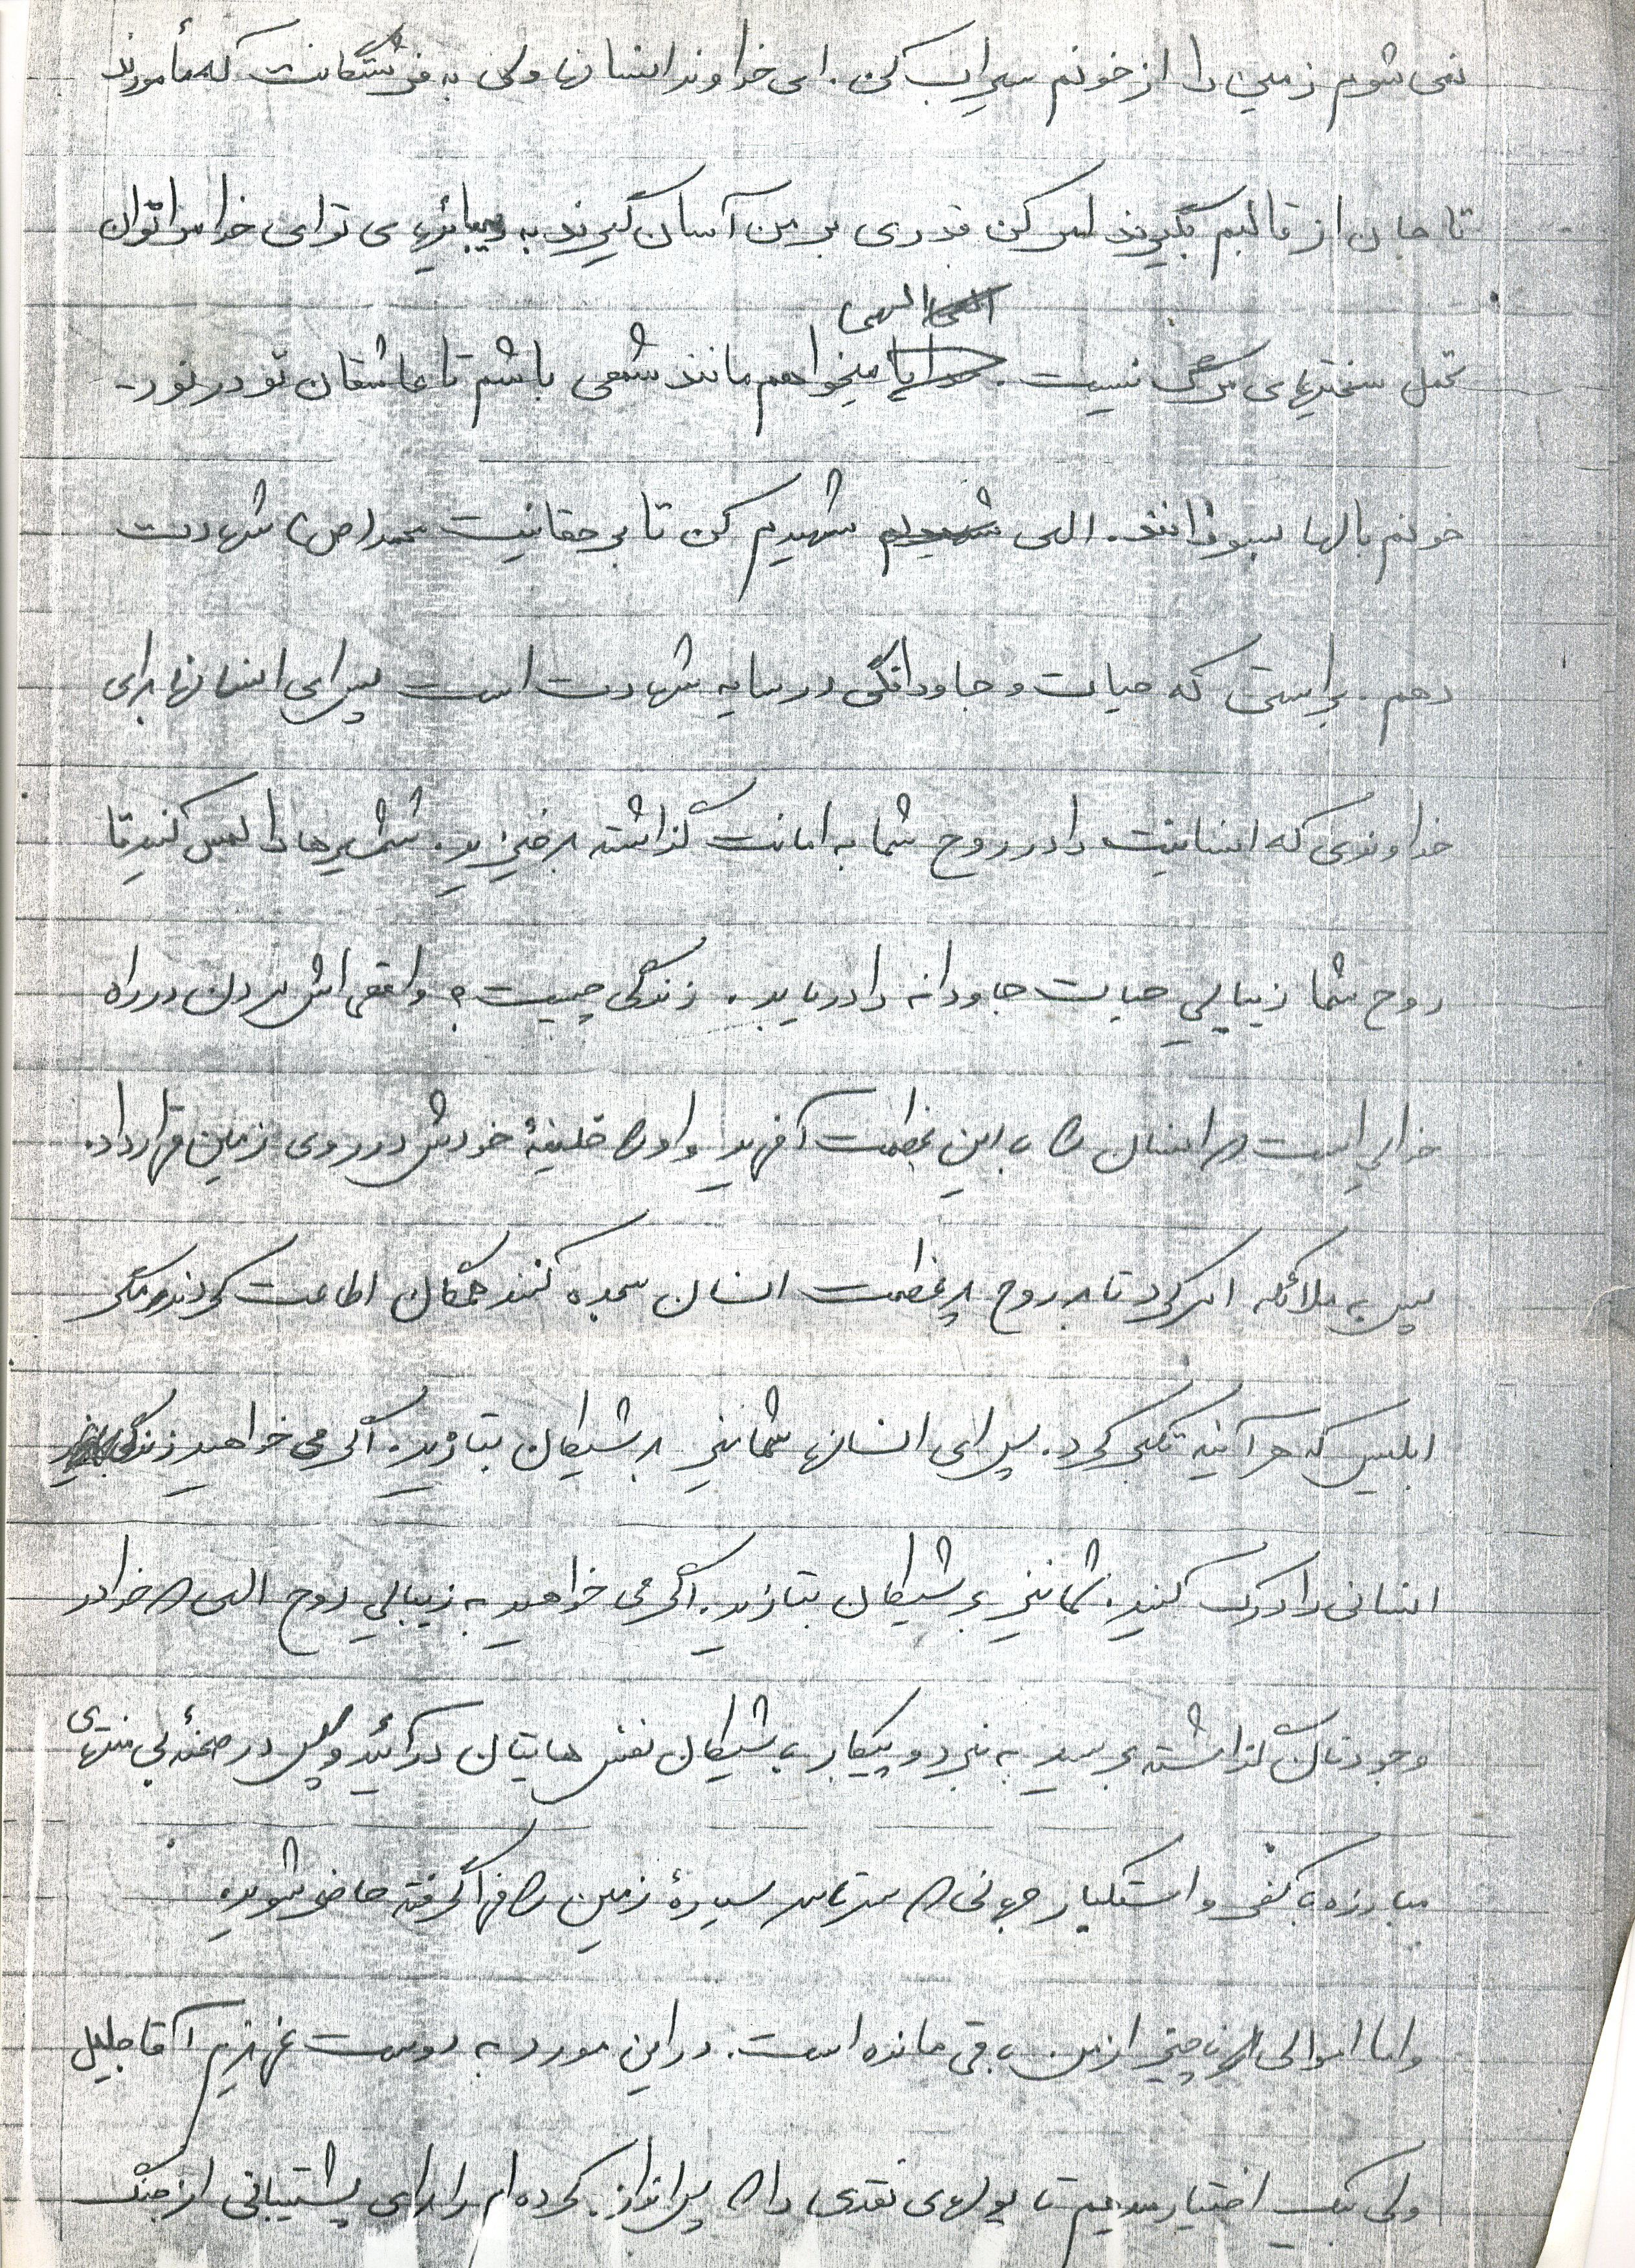 نمی شوم زمین را از خونم سیراب کن. ای خداوند انسانها ولی به فرشتگانت که مأمورند
تا جان از قالبم بگیرند امر کن قدری بر من آسان گیرند به زیبائیهای تو ای خدا مرا توان
تحمل سختیهای مرگ نیست. الهی میخواهم مانند شمعی باشم تا عاشقان تو در نور
خونم بالها بسوزانند. الهی شهیدم کن تا بر حقانیت محمد (ص) شهادت
دهم. براستی که حیات و جاودانگی در سایه شهادت است پس ای انسانها برای
خداوندی که انسانیت را در روح شما به امانت گذاشته برخیزید. شمشیرها را لمس کنید تا
روح شما زیبایی حیات جاودانه را دریابد. زندگی چیست؟ واقعی اش مردن در راه
خدایی است که انسان را با این عظمت آفرید و او را خلیفۀ خودش در روی زمین قرار داد.
سپس به ملائکه امر کرد تا بر روح پرعظمت انسان سجده کنند همگان اطاعت کردند مگر
ابلیس که هر آینه تکبر کرد. پس ای انسانها شما نیز بر شیطان بتازید. اگر می خواهید زندگی
انسانی را درک کنید. شما نیز بر شیطان بتازید. اگر می خواهید به زیبایی روح الهی که خدا در
وجودتان گذاشته برسید به نبرد و پیکار با شیطان نفس هایتان درآئید و پس در صحنۀ بی منتهای
مبارزه با کفر و استکبار جهانی که سرتاسر سیرۀ زمین را فرا گرفته حاضر شوید.
و اما اموالی ناچیز از من باقی مانده است. در این مورد به دوست عزیزم آقا جلیل
ولی بک اختیار میدهم تا پولهای نقدی را که پس انداز کرده ام را برای پشتیبانی از جنگ